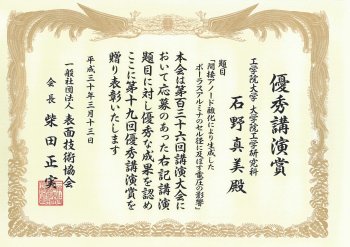 優秀講演賞
工学院大学 大学院工学研究科
石野真美殿
題目
「間接アノード酸化により生成した
ポーラスアルミナのセル径に及ぼす電圧の影響」
本会は第百三十六回講演大会に
おいて応募のあった右記講演
題目に対し優秀な成果を認め
ここに第十九回優秀講演賞を
贈り表彰いたします
平成三十年三月十三日
一般社団法人 表面技術協会
会長 柴田正実